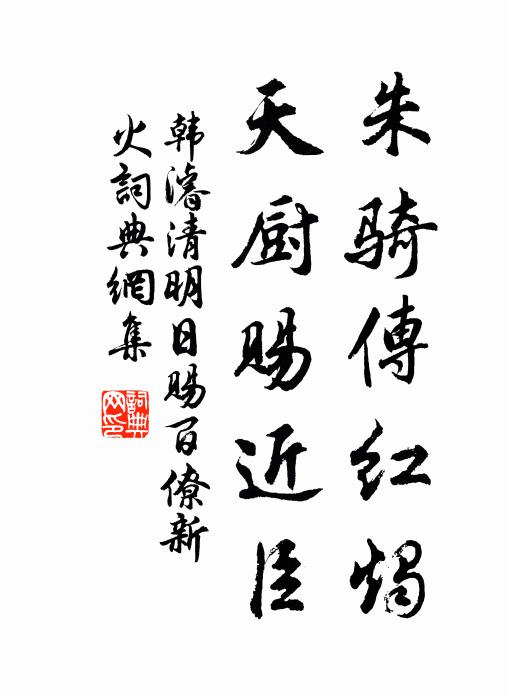 朱骑傳红燭
天厨賜近臣
韩濬清明日賜百僚新
火詞典網集
詞典网印